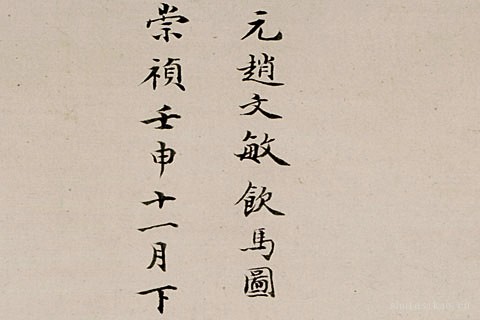 元趙文敏飲馬圖
崇禎壬申十一月下